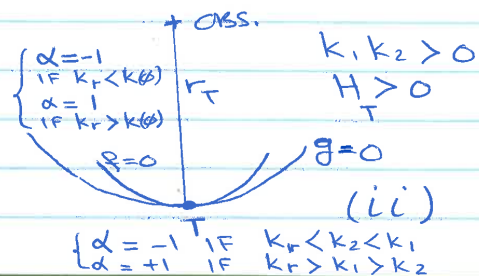 OBS.
α = -1
IF kr < k(ϕ)
α = 1
IF kr > k(ϕ)
rT
k1 k2 > 0
HT > 0
g=0
g=0
T
(ii)
{ α = -1 IF kr < k2 < k1
α = +1 IF kr > k1 > k2